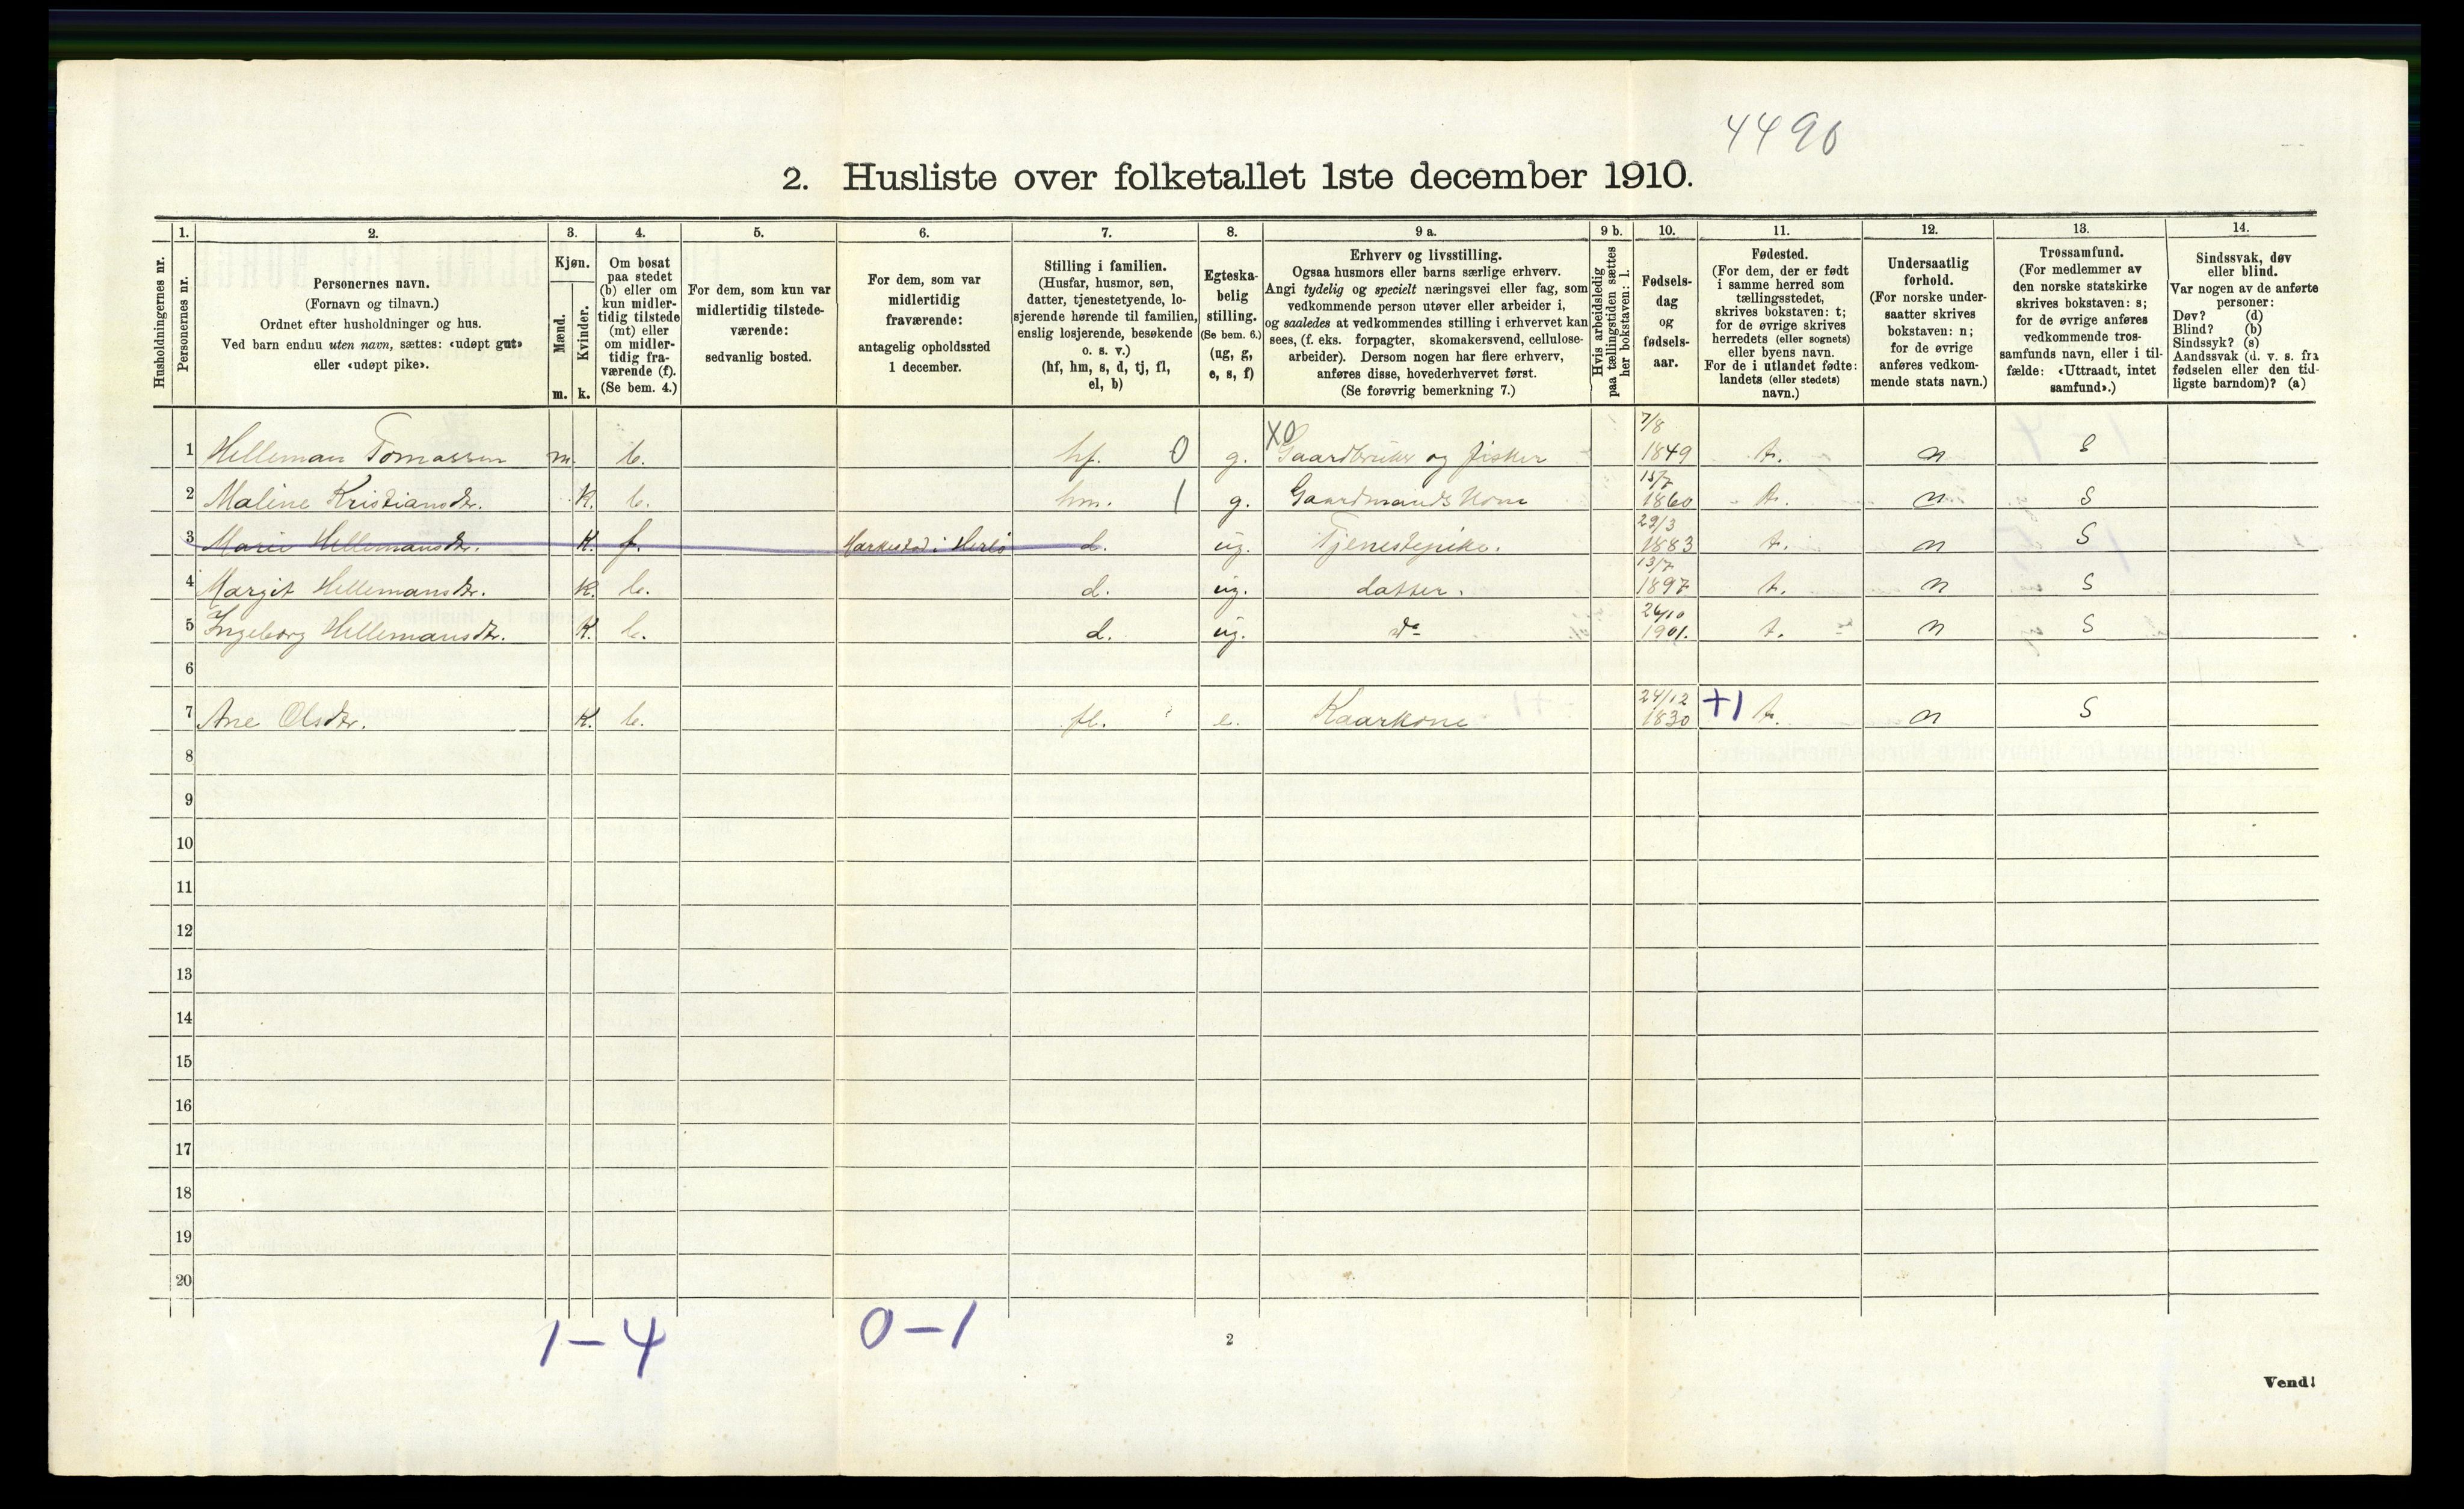 4490
2. Husliste over folketallet 1ste december 1910.
Husholdningernes nr.
1.
Personernes nr.
2.
Personernes navn.
(Fornavn og tilnavn.)
Ordnet efter husholdninger og hus.
Ved barn endnu uten navn, sættes: «udøpt gut»
eller «udøpt pike».
3.
Kjøn.
Mænd.
m.
Kvinder.
k.
4.
Om bosat
paa stedet
(b) eller om
kun midler-
tidig tilstede
(mt) eller
om midler-
tidig fra-
værende (f).
(Se bem. 4.)
5.
For dem, som kun var
midlertidig tilstede-
værende:
sedvanlig bosted.
6.
For dem, som var
midlertidig
fraværende:
antagelig opholdssted
1 december.
7.
Stilling i familien.
(Husfar, husmor, søn,
datter, tjenestetyende, lo-
sjerende hørende til familien,
enslig losjerende, besøkende
o. s. v.)
(hf, hm, s, d, tj, fl,
el, b)
8.
Egteska-
belig
stilling.
(Se bem. 6.)
(ug, g,
e, s, f)
9 a.
Erhverv og livsstilling.
Ogsaa husmors eller barns særlige erhverv.
Angi tydelig og specielt næringsvei eller fag, som
vedkommende person utøver eller arbeider i,
og saaledes at vedkommendes stilling i erhvervet kan
sees, (f. eks. forpagter, skomakersvend, cellulose-
arbeider). Dersom nogen har flere erhverv,
anføres disse, hovederhvervet først.
(Se forøvrig bemerkning 7.)
9 b.
Hvis arbeidsledig
paa tællingstiden sættes
her bokstaven: l.
10.
Fødsels-
dag
og
fødsels-
aar.
11.
Fødested.
(For dem, der er født
i samme herred som
tællingsstedet,
skrives bokstaven: t;
for de øvrige skrives
herredets (eller sognets)
eller byens navn.
For de i utlandet fødte:
landets (eller stedets)
navn.)
12.
Undersaatlig
forhold.
(For norske under-
saatter skrives
bokstaven: n;
for de øvrige
anføres vedkom-
mende stats navn.)
13.
Trossamfund.
(For medlemmer av
den norske statskirke
skrives bokstaven: s;
for de øvrige anføres
vedkommende tros-
samfunds navn, eller i til-
fælde: «Uttraadt, intet
samfund».)
14.
Sindssvak, døv
eller blind.
Var nogen av de anførte
personer:
Døv? (d)
Blind? (b)
Sindssyk? (s)
Aandssvak (d. v. s. fra
fødselen eller den tid-
ligste barndom)? (a)
1 Helleman Tomassen m. b. hf. 0 g. X0 Gaardbruker og fisker 7/8 1849 t. n S
2 Maline Kristiansdtr. K. b. hm. 1 g. Gaardmands Kone 15/7 1860 t. n S
3 Marie Hellemansdtr. K. f. Markestad i Herlö d. ug. Tjenestepike. 29/3 1883 t. n S
4 Margit Hellemansdtr. K. b. d. ug. datter. 13/7 1897 t. n S
5 Ingeborg Hellemansdtr. K. b. d. ug. do 26/10 1901. t. n S
6
7 Ane Olsdtr. K. b. fl. ? e. Kaarkone 24/12 1830 +1 t. n S
8
9
10
11
12
13
14
15
16
17
18
19
20
1-4 0-1
2
Vend!